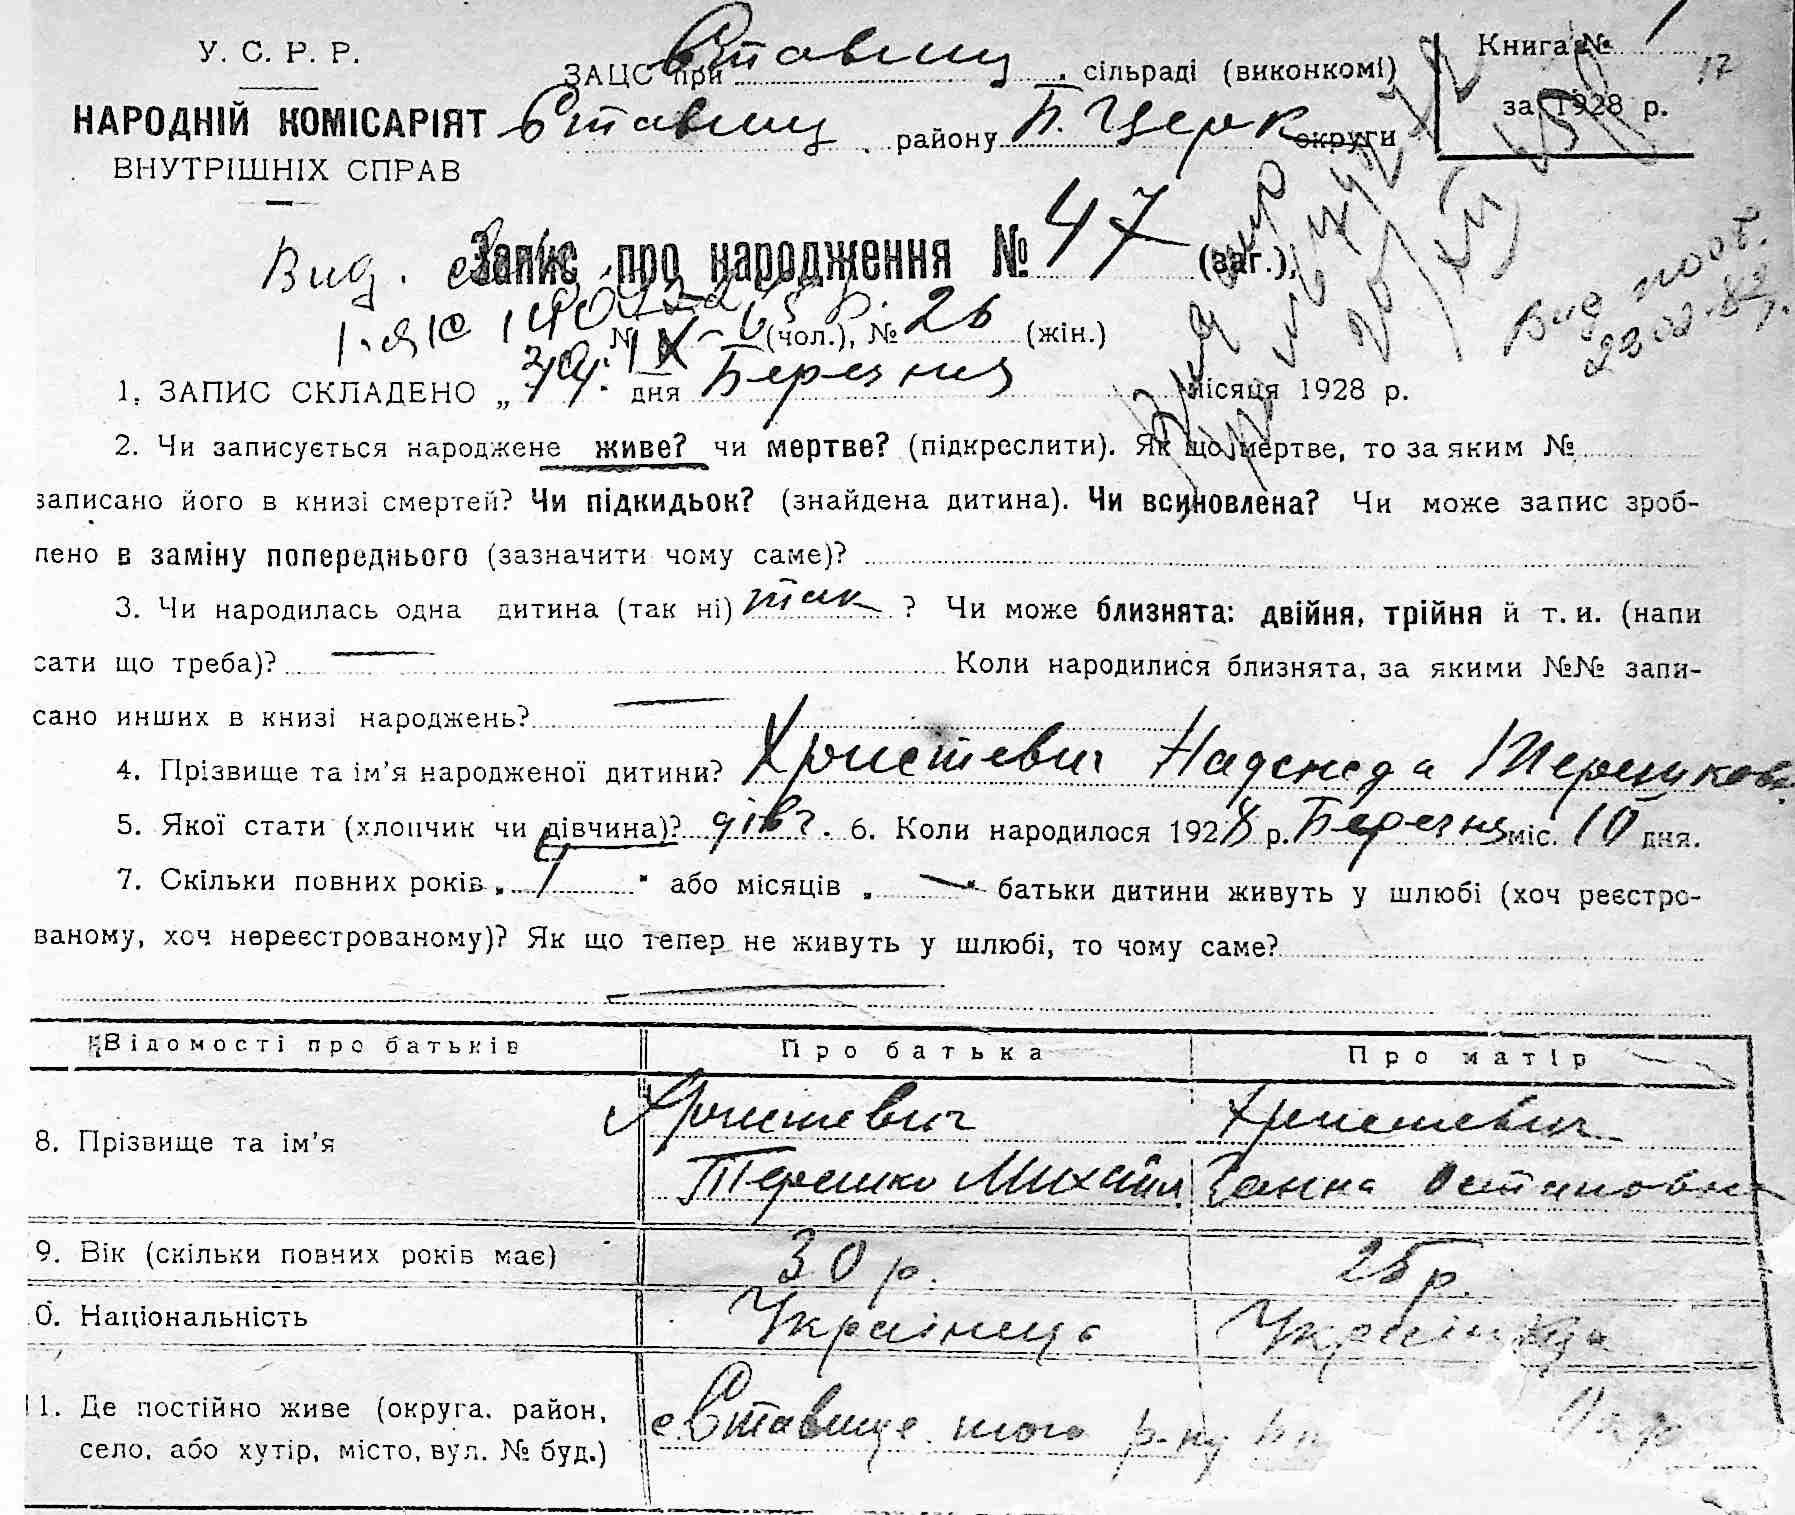 У. С. Р. Р.
НАРОДНІЙ КОМІСАРІЯТ
ВНУТРІШНІХ СПРАВ
ЗАЦС при Ставищ. сільраді (виконкомі)
Ставищ. району Б. Церк округи
Книга № 1
17
за 1928 р.
Вид.
Запис про народження № 47 (заг.),
№ (чол.), № 26 (жін.)
Вид повт.
1. ЗАПИС СКЛАДЕНО „ дня Березня місяця 1928 р.
2. Чи записується народжене живе? чи мертве? (підкреслити). Як що мертве, то за яким №
записано його в книзі смертей? Чи підкидьок? (знайдена дитина). Чи всиновлена? Чи може запис зроб-
лено в заміну попереднього (зазначити чому саме)?
3. Чи народилась одна дитина (так ні) так ? Чи може близнята: двійня, трійня й т. и. (напи
сати що треба)? — Коли народилися близнята, за якими №№ запи-
сано инших в книзі народжень? —
4. Прізвище та ім'я народженої дитини? Христевич Надежда Терешков.
5. Якої стати (хлопчик чи дівчина)? дівч. 6. Коли народилося 1928 р. Березня міс. 10 дня.
7. Скільки повних років „ 1 " або місяців „ — " батьки дитини живуть у шлюбі (хоч реєстро-
ваному, хоч нереєстрованому)? Як що тепер не живуть у шлюбі, то чому саме?
—
Відомості про батьків Про батька Про матір
8. Прізвище та ім'я Христевич Терешко Михайл. Христевич Ганна Остаповна
9. Вік (скільки повних років має) 30 р. 25 р.
0. Національність Українець Українка
11. Де постійно живе (округа, район, село, або хутір, місто, вул. № буд.) с Ставище того р-ну